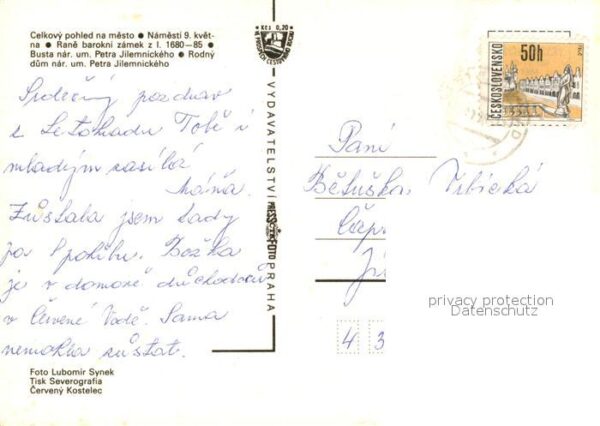 Celkový pohled na město • Náměstí 9. květ-
na • Raně barokní zámek z l. 1680—85 •
Busta nár. um. Petra Jilemnického • Rodný
dům nár. um. Petra Jilemnického
Srdečný pozdrav
z Letohradu Tobě i
mladým zasílá
Máňa.
Zůstala jsem tady
po pohřbu. Božka
je v domově důchodců
v Červené Vodě. Sama
nemohla zůstat.
Foto Lubomír Synek
Tisk Severografia
Červený Kostelec
Kčs 0,20
VYDAVATELSTVÍ PRESSFOTO PRAHA
ČESKOSLOVENSKO
50h
Paní
Běluška Vrbická
Čáp
Ji
4 3
privacy protection
Datenschutz